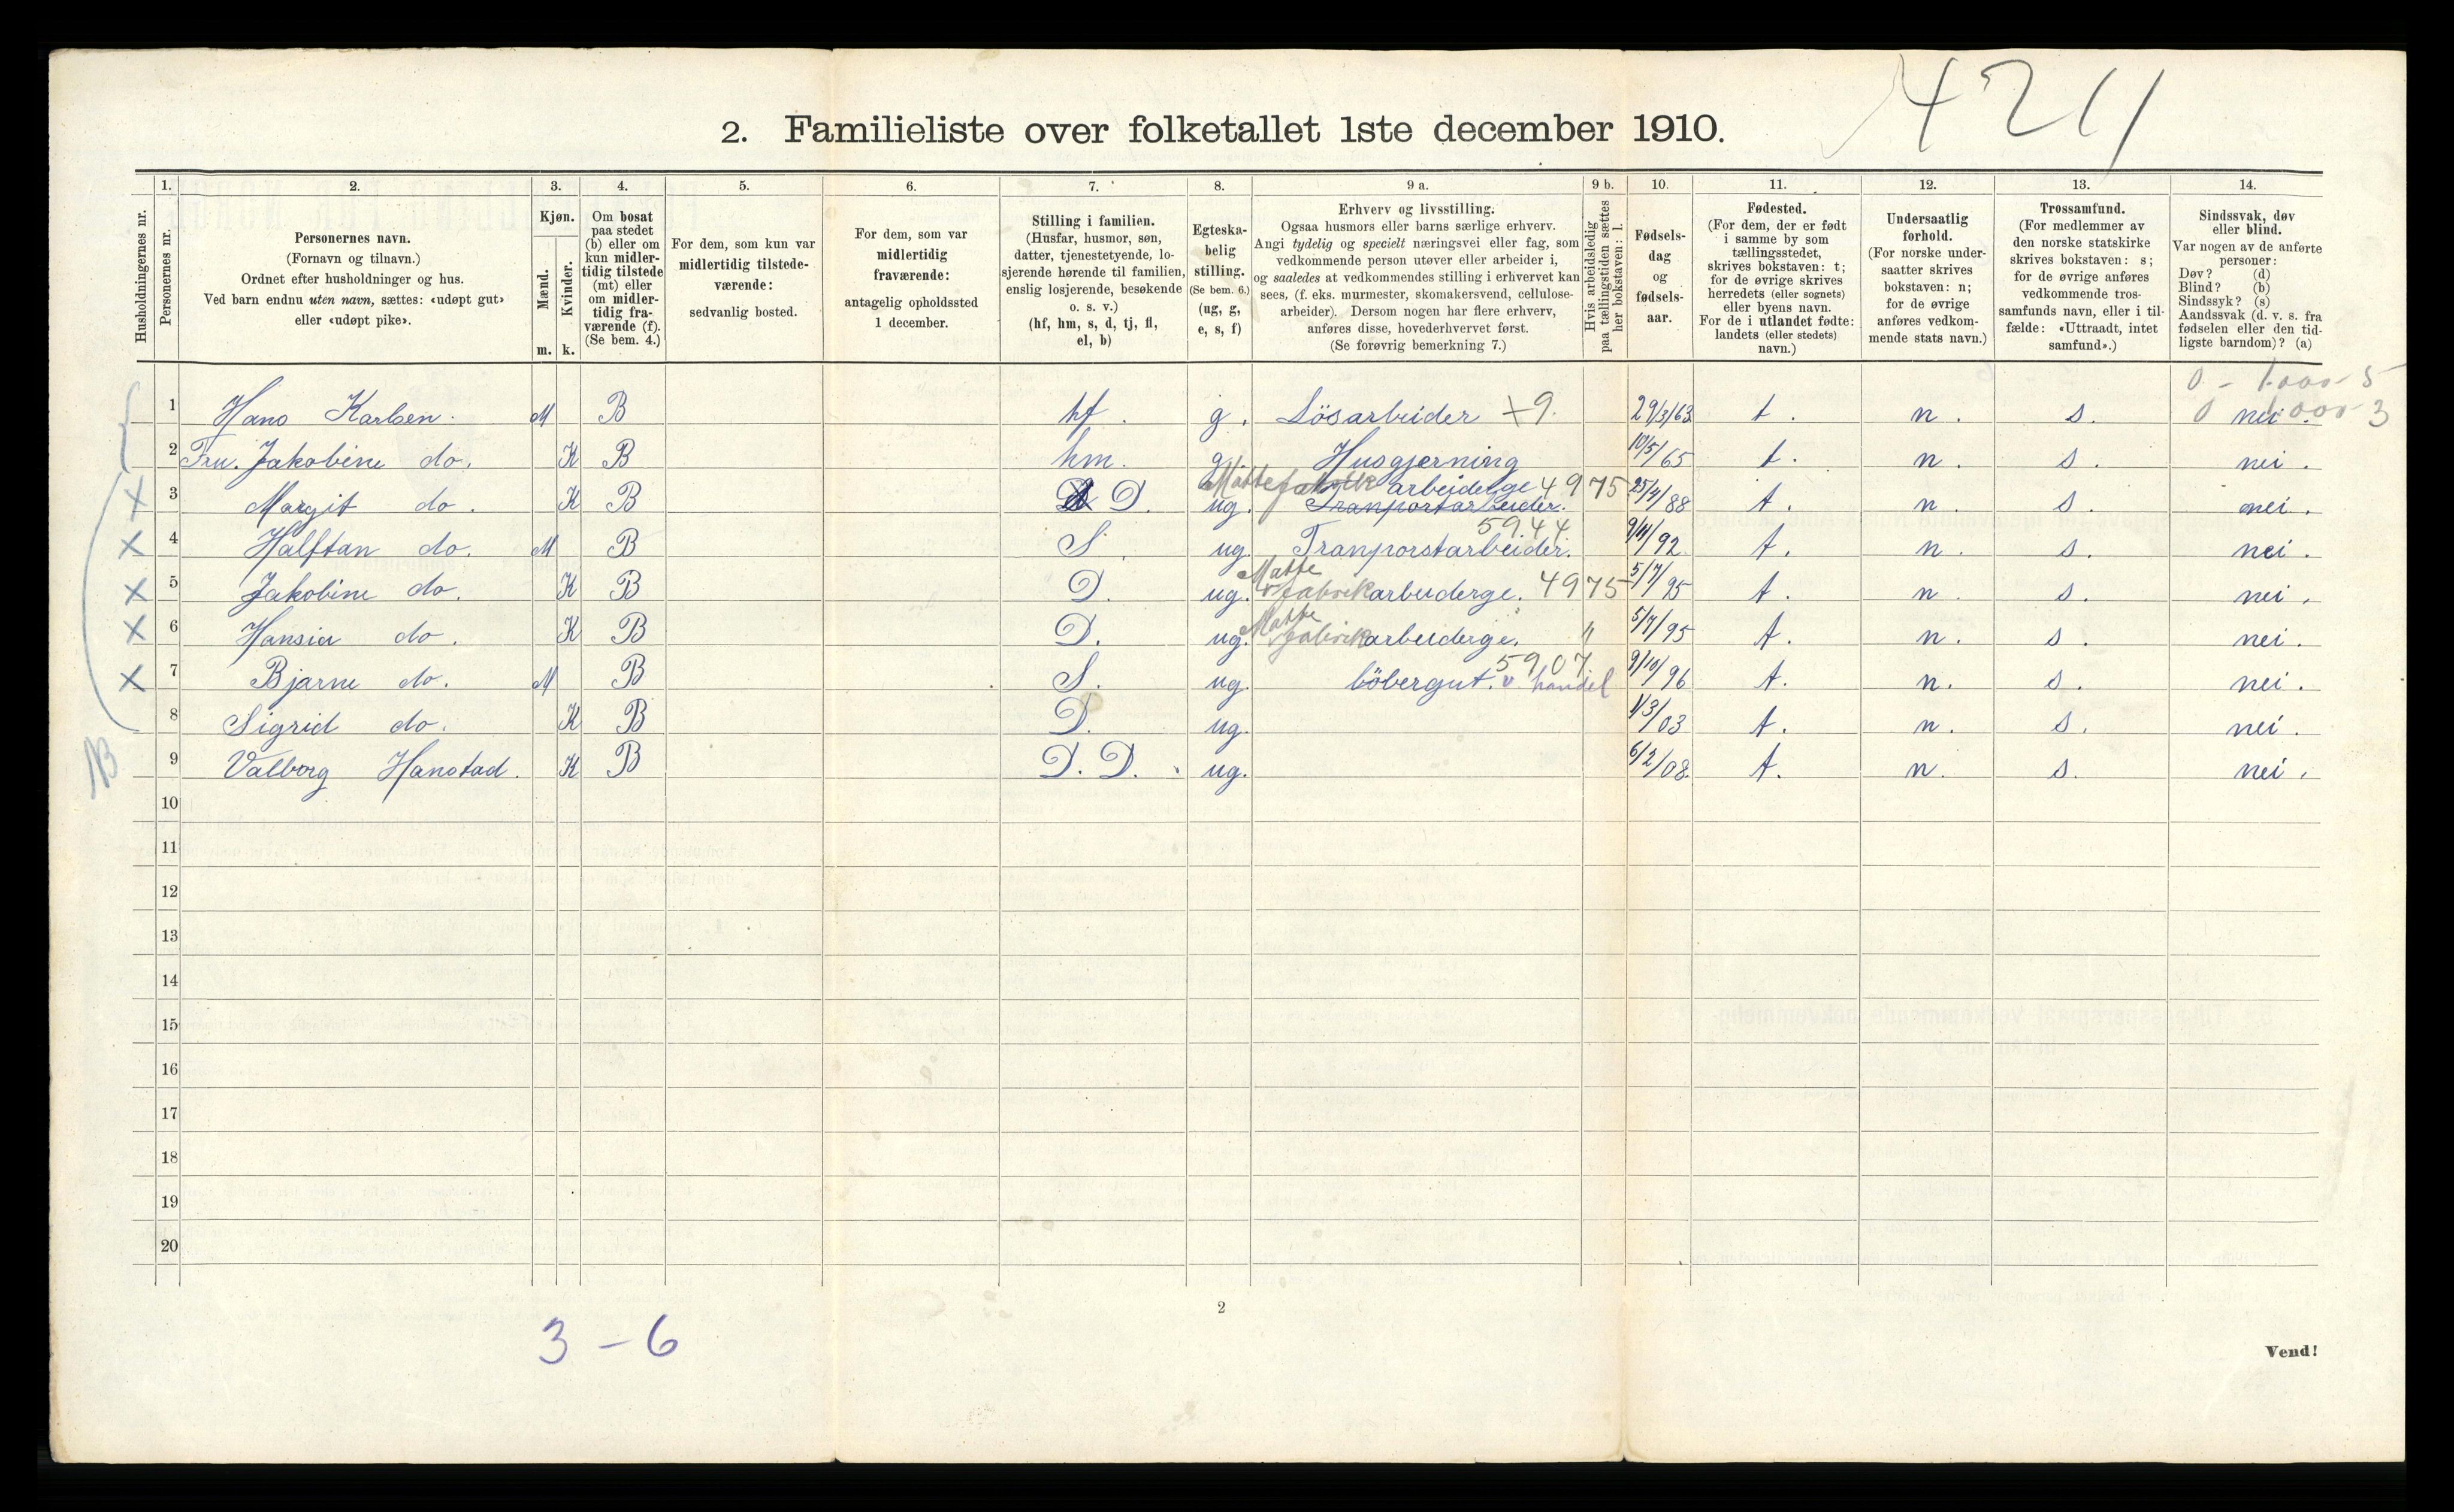 4211
2. Familieliste over folketallet 1ste december 1910.
1. 2. 3. 4. 5. 6. 7. 8. 9 a. 9 b. 10. 11. 12. 13. 14.
Husholdningernes nr.
Personernes nr.
Personernes navn.
(Fornavn og tilnavn.)
Ordnet efter husholdninger og hus.
Ved barn endnu uten navn, sættes: «udøpt gut»
eller «udøpt pike».
Kjøn.
Mænd.
Kvinder.
m. k.
Om bosat
paa stedet
(b) eller om
kun midler-
tidig tilstede
(mt) eller
om midler-
tidig fra-
værende (f).
(Se bem. 4.)
For dem, som kun var
midlertidig tilstede-
værende:
sedvanlig bosted.
For dem, som var
midlertidig
fraværende:
antagelig opholdssted
1 december.
Stilling i familien.
(Husfar, husmor, søn,
datter, tjenestetyende, lo-
sjerende hørende til familien,
enslig losjerende, besøkende
o. s. v.)
(hf, hm, s, d, tj, fl,
el, b)
Egteska-
belig
stilling.
(Se bem. 6.)
(ug, g,
e, s, f)
Erhverv og livsstilling.
Ogsaa husmors eller barns særlige erhverv.
Angi tydelig og specielt næringsvei eller fag, som
vedkommende person utøver eller arbeider i,
og saaledes at vedkommendes stilling i erhvervet kan
sees, (f. eks. murmester, skomakersvend, cellulose-
arbeider). Dersom nogen har flere erhverv,
anføres disse, hovederhvervet først.
(Se forøvrig bemerkning 7.)
Hvis arbeidsledig
paa tællingstiden sættes
her bokstaven: l.
Fødsels-
dag
og
fødsels-
aar.
Fødested.
(For dem, der er født
i samme by som
tællingsstedet,
skrives bokstaven: t;
for de øvrige skrives
herredets (eller sognets)
eller byens navn.
For de i utlandet fødte:
landets (eller stedets)
navn.)
Undersaatlig
forhold.
(For norske under-
saatter skrives
bokstaven: n;
for de øvrige
anføres vedkom-
mende stats navn.)
Trossamfund.
(For medlemmer av
den norske statskirke
skrives bokstaven: s;
for de øvrige anføres
vedkommende tros-
samfunds navn, eller i til-
fælde: «Uttraadt, intet
samfund».)
Sindssvak, døv
eller blind.
Var nogen av de anførte
personer:
Døv? (d)
Blind? (b)
Sindssyk? (s)
Aandssvak (d. v. s. fra
fødselen eller den tid-
ligste barndom)? (a)
0 - 1.000 - 5
0 1000 3
1 Hans Karlsen. M B hf. g. Lösarbeider +9. 29/3/63 t. n. s. nei.
2 Fru. Jakobine do. K B hm. g. Husgjerning 10/5/65 t. n. s. nei.
Mattefabrik arbeiderge 4975
3 Margit do. K B D. ug. Tranportarbeider. 25/4/88 t. n. s. nei.
5944
4 Halftan do. M B S. ug. Tranporstarbeider. 9/11/92 t. n. s. nei.
Matte
5 Jakobine do. K B D. ug. fabrikarbeiderge. 4975 5/7/95 t. n. s. nei.
Matte
6 Hansia do. K B D. ug. fabrikarbeiderge. " 5/7/95 t. n. s. nei.
5907
7 Bjarne do. M B S. ug. löbergut. v. handel 9/10/96 t. n. s. nei.
8 Sigrid do. K B D. ug. 1/3/03 t. n. s. nei.
9 Valborg Hanstad. K B D. D. ug. 6/2/08. t. n. s. nei.
10
11
12
13
14
15
16
17
18
19
20
2
3 - 6
Vend!